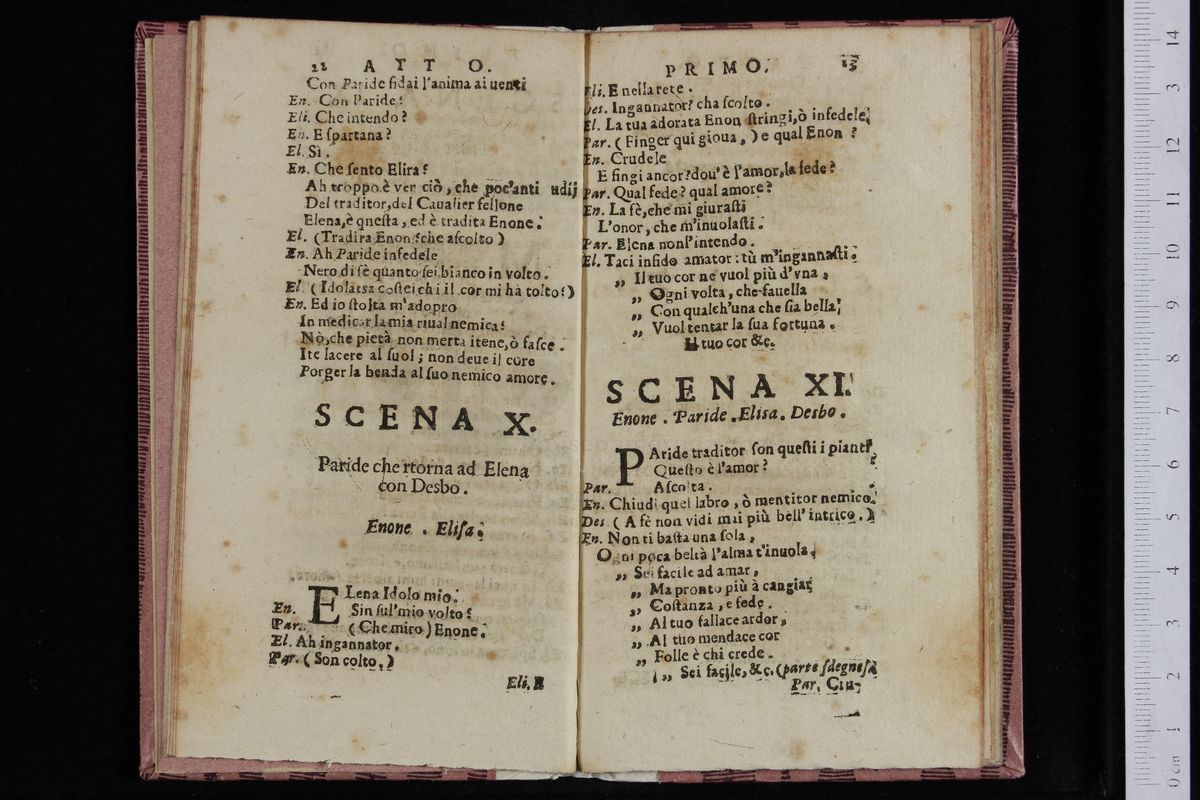 22 ATTO.
Con Paride fidai l'anima ai uenti
En. Con Paride?
Eli. Che intendo?
En. E ſpartana?
El. Sì.
En. Che ſento Elira?
Ah troppo è ver ciò, che poc'anti udij
Del traditor, del Caualier fellone
Elena, è qneſta, ed è tradita Enone.
El. (Tradira Enon? che aſcolto)
En. Ah Paride infedele
Nero di fè quanto ſei bianco in volto.
El. (Idolatra coſtei chi il cor mi hà tolto?)
En. Ed io ſtolta m'adopro
In medicar la mia riual nemica?
Nò, che pietà non merta itene, ò faſce.
Ite lacere al ſuol; non deue il core
Porger la benda al ſuo nemico amore.
SCENA X.
Paride che rtorna ad Elena
con Desbo.
Enone. Eliſa.
En. ELena Idolo mio.
Sin ſul'mio volto?
Par. (Che miro) Enone.
El. Ah ingannator.
Par. (Son colto.)
Eli. E
PRIMO. 23
Eli. E nella rete.
Des. Ingannator? cha ſcolto.
El. La tua adorata Enon ſtringi, ò infedele.
Par. (Finger qui gioua,) e qual Enon?
En. Crudele
E fingi ancor? dou'è l'amor, la fede?
Par. Qual fede? qual amore?
En. La fè, che mi giuraſti
L'onor, che m'inuolaſti.
Par. Elena nonſ'intendo.
El. Taci infido amator: tù m'ingannaſti.
„ Il tuo cor ne vuol più d'vna,
„ Ogni volta, che fauella
„ Con qualch'una che ſia bella,
„ Vuol tentar la ſua fortuna.
Il tuo cor &c.
SCENA XI.
Enone. Paride. Elisa. Desbo.
PAride traditor ſon queſti i pianti?
Queſto è l'amor?
Par. Aſcolta.
En. Chiudi quel labro, ò mentitor nemico.
Des (A fè non vidi mai più bell'intrico.)
En. Non ti baſta una ſola,
Ogni poca beltà l'alma t'inuola,
„ Sei facile ad amar,
„ Ma pronto più à cangiar,
„ Coſtanza, e fede.
„ Al tuo fallace ardor,
„ Al tuo mendace cor
„ Folle è chi crede.
„ Sei facile, &c. (parte ſdegnoſa
Par. Cru-
0 cm 1 2 3 4 5 6 7 8 9 10 11 12 3 14